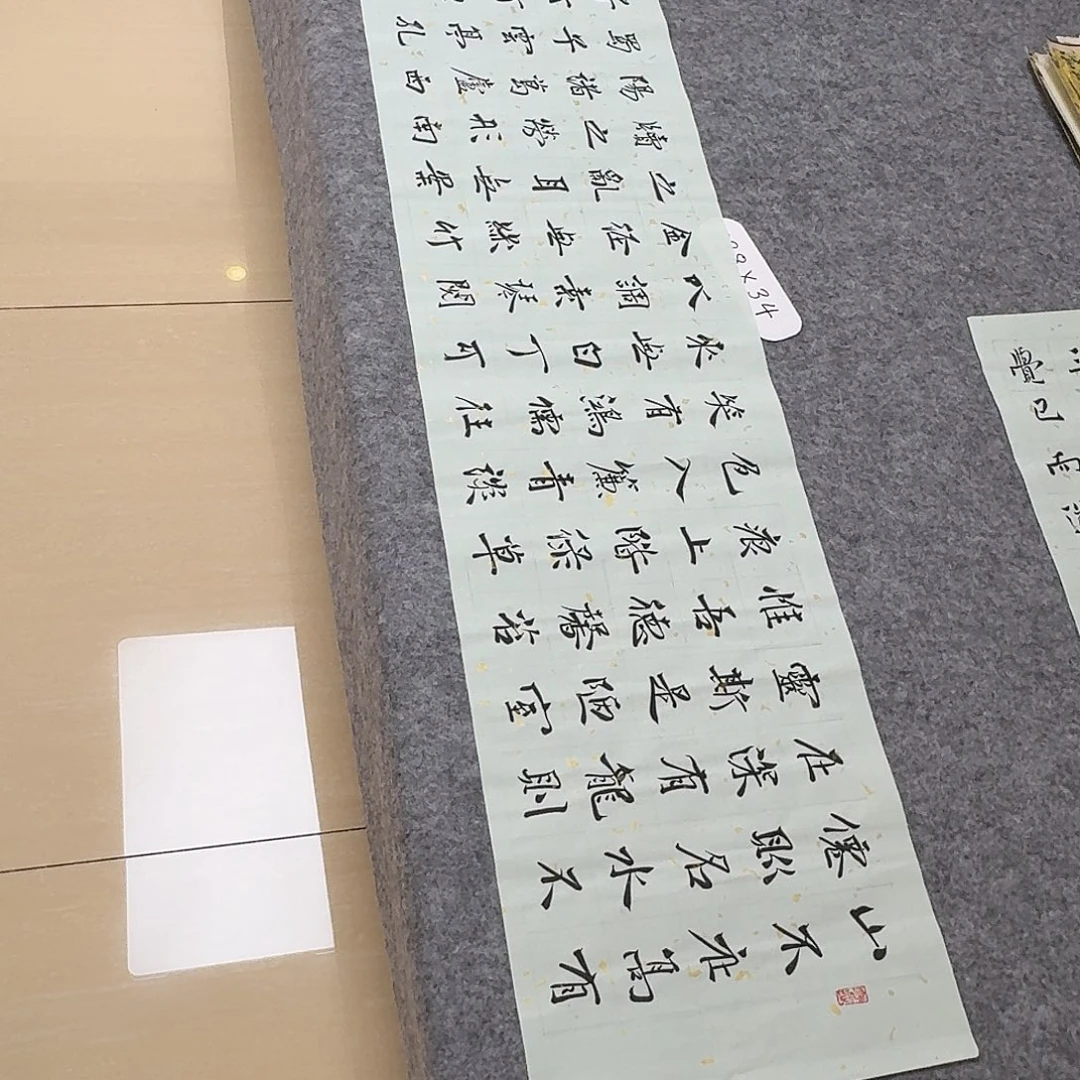 山不在高有
僊則名水不
在深有龍則
靈斯是陋室
惟吾德馨苔
痕上階綠草
色入簾青淡
笑有鴻儒往
來無白丁可
以調素琴閱
金經無絲竹
之亂耳無案
牘之勞形南
陽諸葛廬西
蜀子雲亭孔
X34